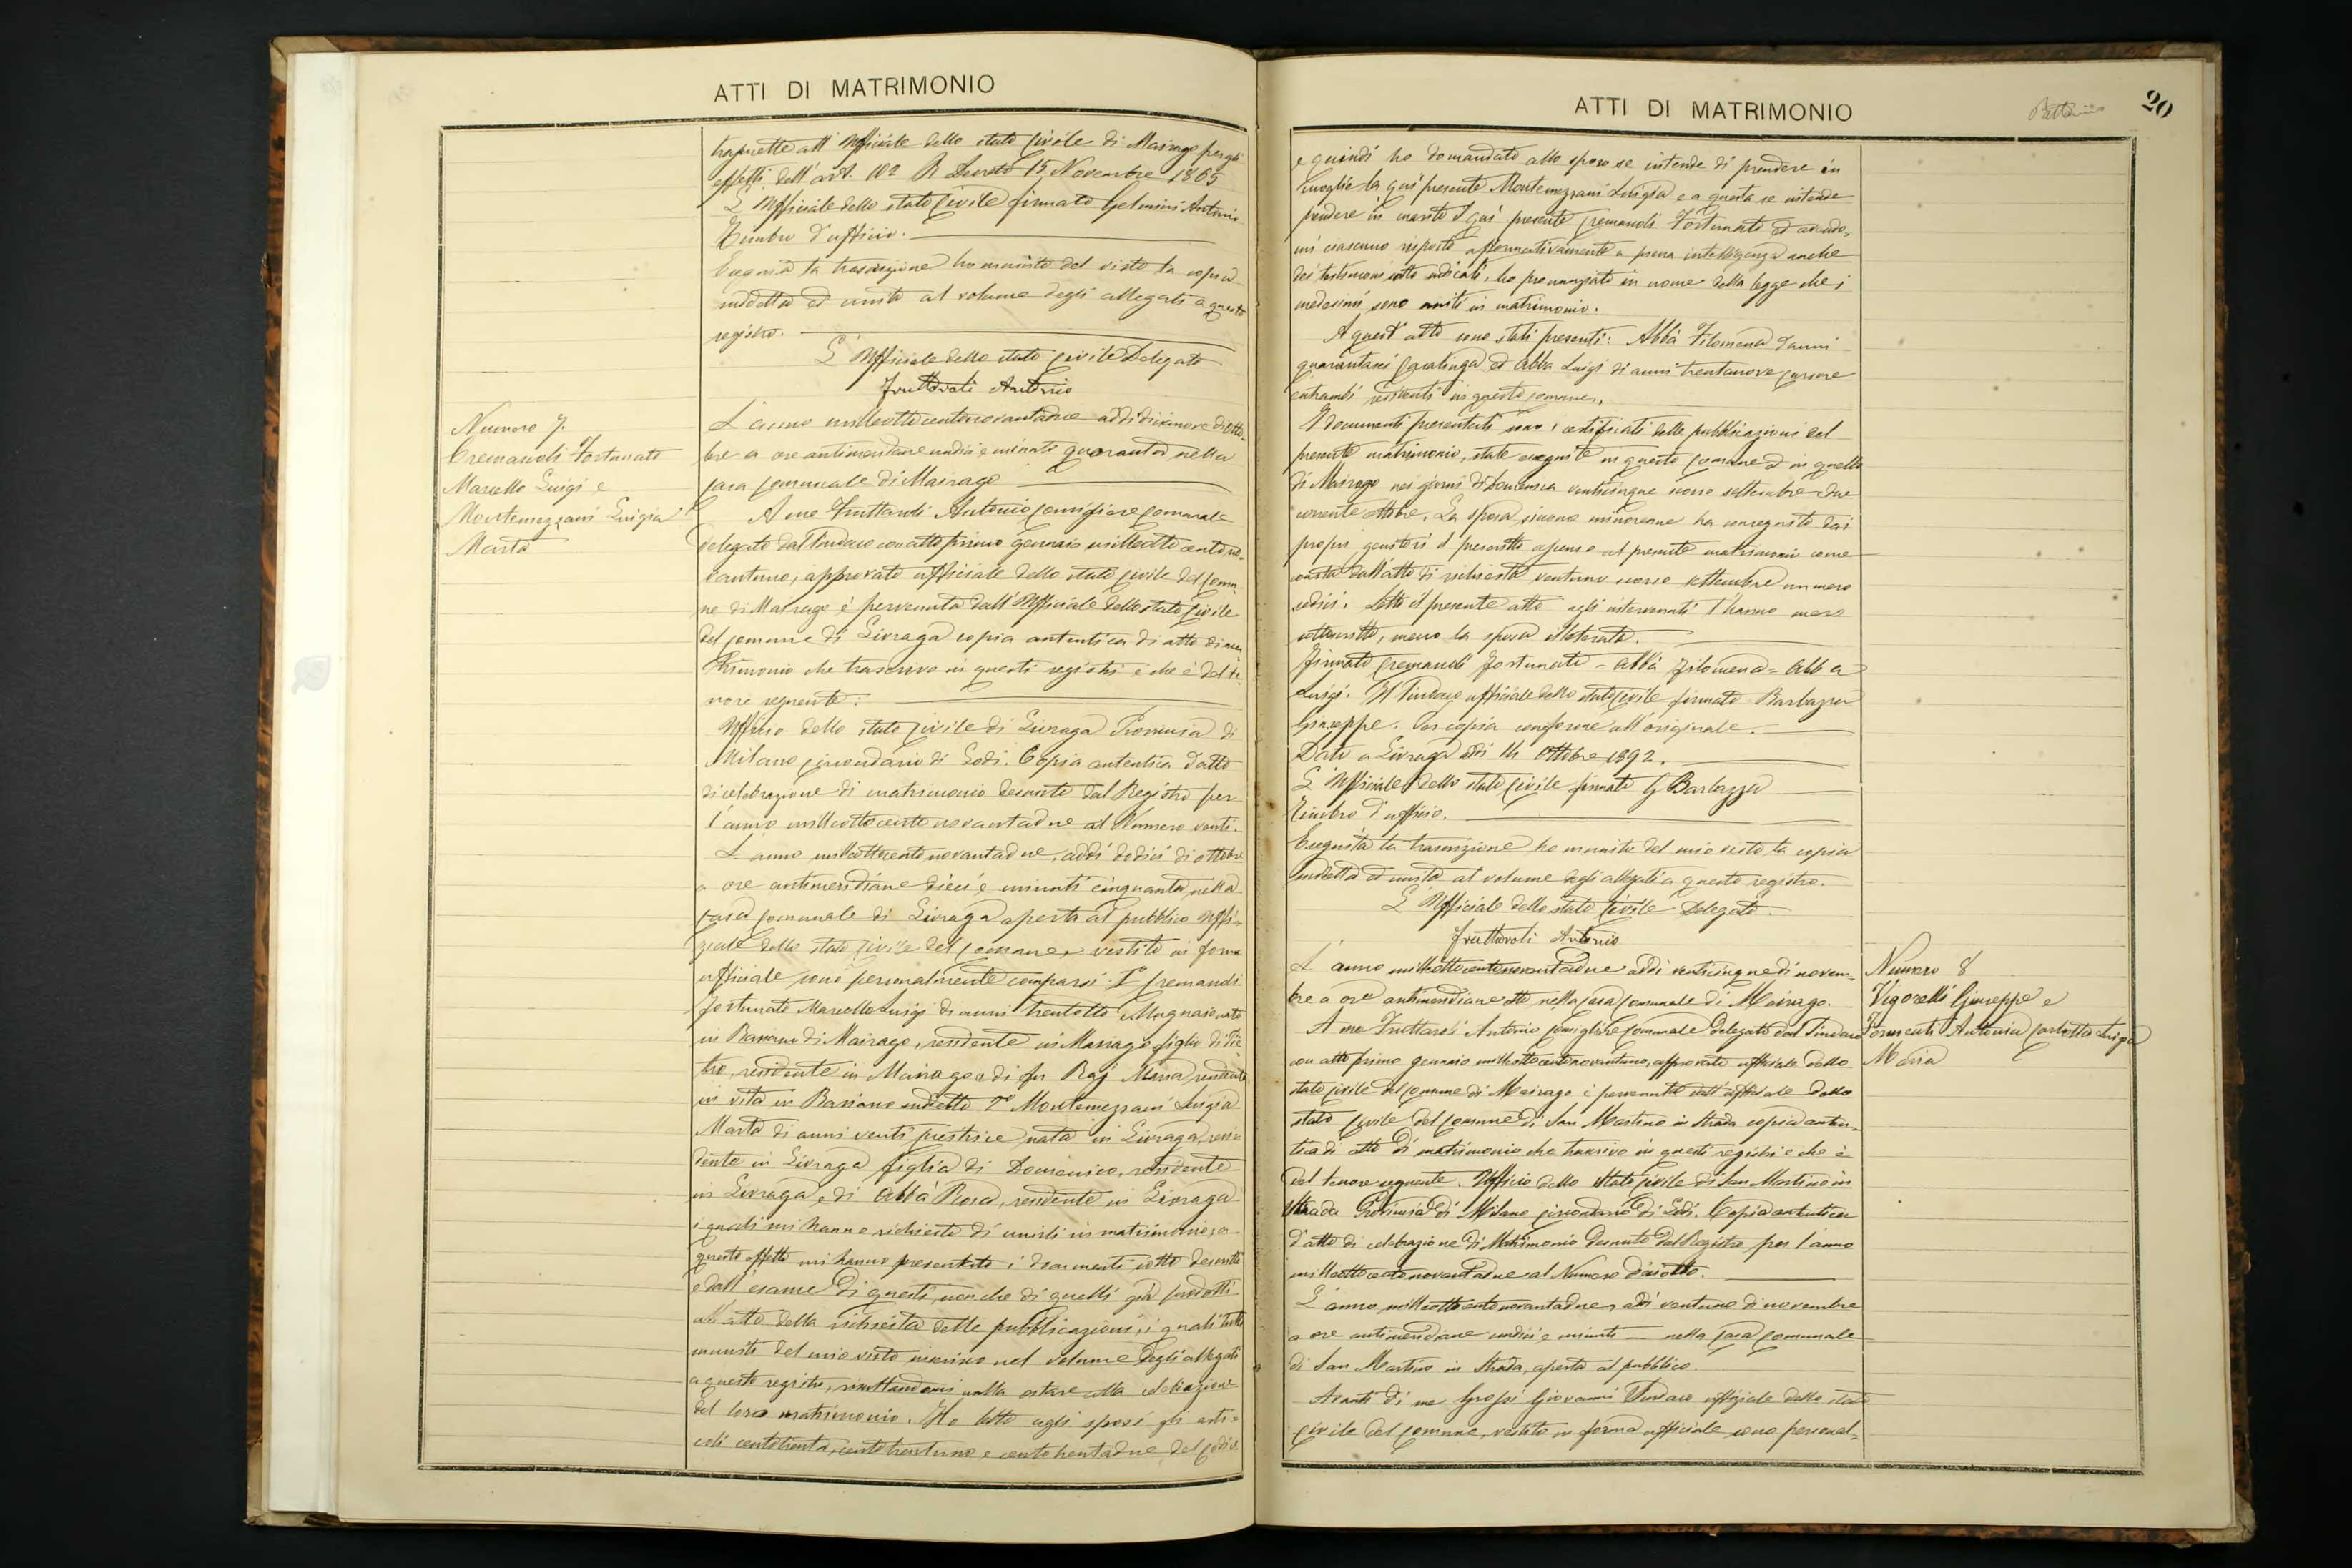 ATTI DI MATRIMONIO
all'Ufficiale dello stato Civile di Mairago per gli
effetti dell'art. 102 R Decreto 15 Novembre 1865
L'Ufficiale dello stato Civile firmato Gelmini Antonio
Timbro d'ufficio.
Eseguita la trascrizione ho munito del visto la copia
suddetta ed unita al volume degli allegati a questo
registro.
L'Ufficiale dello stato Civile Delegato
Fruttaroli Antonio
Numero 7.
Cremascoli Fortunato
Marcello Luigi e
Montemezzani Luigia
Marta
L'anno milleottocentonovantadue addì diecinove di otto-
bre a ore antimeridiane undici e minuti quaranta nella
Casa Comunale di Mairago
A me Fruttaroli Antonio Consigliere Comunale
delegato dal Sindaco con atto primo Gennaio milleottocentono-
vantuno, approvato ufficiale dello stato Civile del Comu-
ne di Mairago è pervenuta dall'Ufficiale dello stato Civile
del Comune di Livraga copia autentica di atto di ma-
trimonio che trascrivo in questi registri e che è del te-
nore seguente:
Ufficio dello stato Civile di Livraga Provincia di
Milano Circondario di Lodi. Copia autentica d'atto
di celebrazione di matrimonio desunto dal Registro per
l'anno milleottocentonovantadue al Numero venti.
L'anno milleottocentonovantadue, addì dodici di ottobre
a ore antimeridiane dieci e minuti cinquanta, nella
Casa Comunale di Livraga aperta al pubblico
dello stato Civile del Comune, vestito in forma
ufficiale sono personalmente comparsi: 1° Cremascoli
Fortunato Marcello Luigi di anni trentotto Mugnaio nato
in Basiano di Mairago, residente in Mairago figlio di Pie-
tro, residente in Mairago e di fu Raj Maria, residente
in vita in Basiano suddetto 2° Montemezzani Luigia
Marta di anni venti nata in Livraga, resi-
dente in Livraga figlia di Domenico, residente
in Livraga e di Abbà Rosa, residente in Livraga
i quali mi hanno richiesto di unirli in matrimonio; a
questo effetto mi hanno presentato i documenti sotto descritti
e dall'esame di questi, nonché di quelli già prodotti
all'atto della richiesta delle pubblicazioni, i quali tutti
muniti del mio visto inserisco nel volume degli allegati
a questo registro, risultandomi nulla ostare alla celebrazione
del loro matrimonio. Ho letto agli sposi gli arti-
coli centotrenta, centotrentuno, e centotrentadue del Codice
ATTI DI MATRIMONIO
20
e quindi ho domandato allo sposo se intende di prendere in
moglie la qui presente Montemezzani Luigia e a questa se intende
prendere in marito il qui presente Cremascoli Fortunato ed avendo-
mi ciascuno risposto affermativamente a piena intelligenza anche
dei testimoni sotto indicati, ho pronunziato in nome della legge che i
medesimi sono uniti in matrimonio.
A quest'atto sono stati presenti: Abbà Filomena d'anni
quarantasei Casalinga ed Abbà Luigi di anni trentanove cursore
entrambi residenti in questo Comune.
I documenti presentati sono i certificati delle pubblicazioni del
presente matrimonio, state eseguite in questo Comune ed in quello
di Mairago nei giorni di Domenica venticinque scorso settembre e due
corrente ottobre. La sposa, siccome minorenne ha conseguito dai
propri genitori il prescritto assenso al presente matrimonio come
consta dall'atto di richiesta ventuno scorso settembre numero
sedici. Letto il presente atto agli intervenuti l'hanno meco
sottoscritto, meno la sposa illetterata.
Firmato Cremascoli Fortunato = Abbà Filomena = Abbà
Luigi. Il Sindaco ufficiale dello stato Civile firmato Barbazza
Giuseppe. Per copia conforme all'originale.
Dato a Livraga addì 14 Ottobre 1892.
L'Ufficiale dello stato Civile firmato G Barbazza
Timbro d'ufficio.
Eseguita la trascrizione ho munita del mio visto la copia
suddetta ed unita al volume degli allegati a questo registro.
L'Ufficiale dello stato Civile Delegato.
Fruttaroli Antonio
L'anno milleottocentonovantadue addì venticinque di novem-
bre a ore antimeridiane otto nella Casa Comunale di Mairago.
A me Fruttaroli Antonio Consigliere Comunale delegato dal Sindaco
con atto primo gennaio milleottocentonovantuno, approvato ufficiale dello
stato Civile del Comune di Mairago è pervenuta dall'ufficiale dello
stato Civile del Comune di San Martino in Strada copia auten-
tica di atto di matrimonio che trascrivo in questi registri e che è
del tenore seguente. Ufficio dello Stato Civile di San Martino in
Strada Provincia di Milano Circondario di Lodi. Copia autentica
d'atto di celebrazione di Matrimonio desunto dal Registro per l'anno
milleottocentonovantadue al Numero diciotto.
L'anno milleottocentonovantadue, addì ventuno di novembre
a ore antimeridiane undici e minuti — nella Casa Comunale
di San Martino in Strada, aperta al pubblico.
Avanti di me Grossi Giovanni Sindaco uffiziale dello stato
Civile del Comune, vestito in forma ufficiale sono personal-
Numero 8
Vigorelli Giuseppe e
Formenti Antonia Carlotta Luigia
Maria